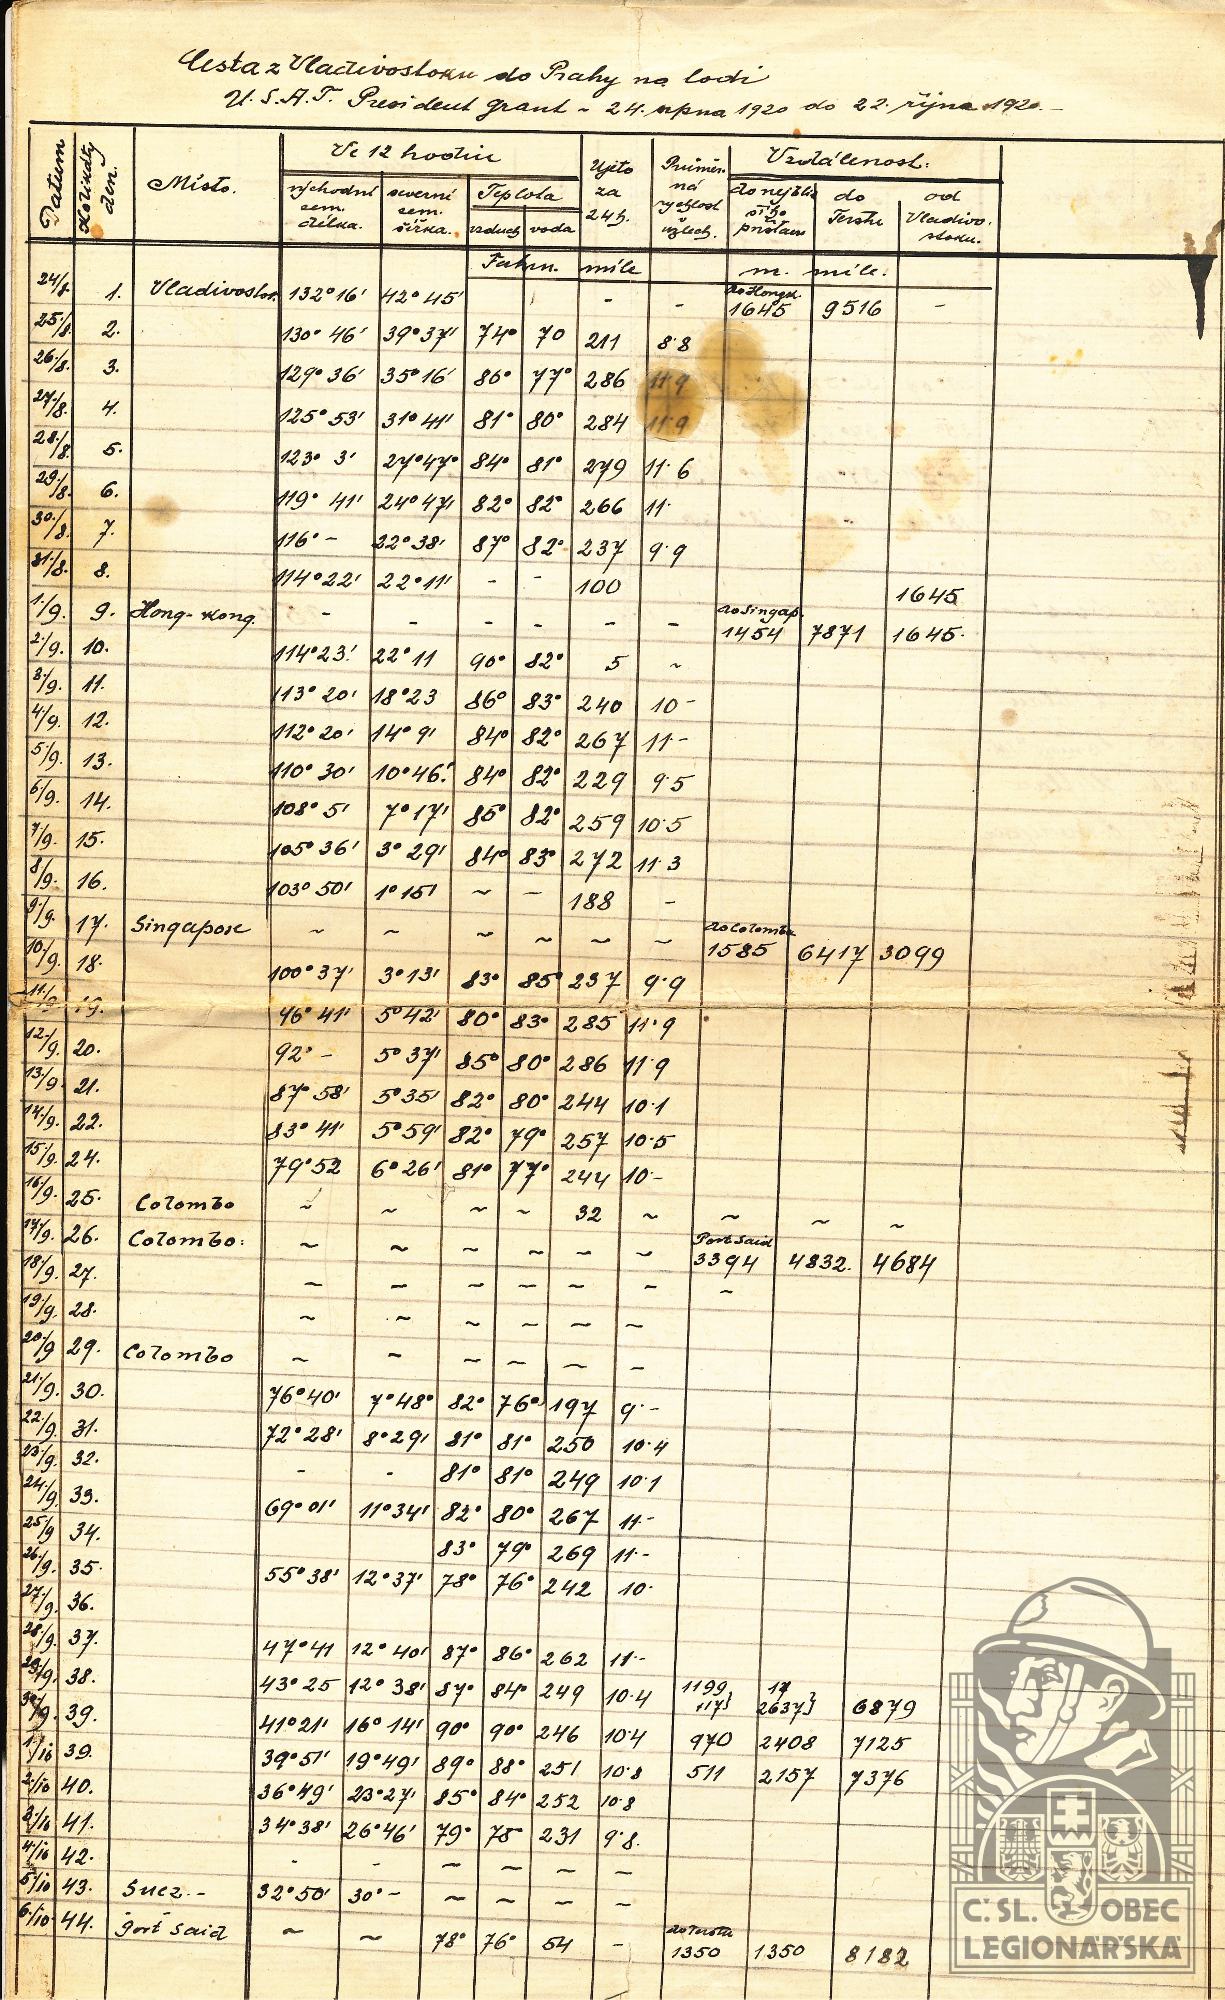 Cesta z Vladivostoku do Prahy na lodi
U.S.A.T. President Grant - 24. srpna 1920 do 22. října 1920.-
Datum Kolikátý den. Místo. Ve 12 hodin Ujeto za 24h. Průměrná rychlost v uzlech. Vzdálenost:
východní zem. délka. severní zem. šířka. Teplota do nejbližšího přístavu do Terstu od Vladivostoku.
vzduch voda
Fahrn. míle m. míle.
24/8. 1. Vladivostok. 132°16' 42°45' - - do Hongk. 1645 9516 -
25./8. 2. 130° 46' 39°37' 74° 70 211 8·8
26./8. 3. 129° 36' 35°16' 80° 77° 286 11·9
27./8. 4. 125° 53' 31°41' 81° 80° 284 11·9
28./8. 5. 123° 3' 27°47° 84° 81° 279 11·6
29./8. 6. 119° 41' 24°47' 82° 82° 266 11·
30./8. 7. 116°- 22°38' 87° 82° 237 9·9
31./8. 8. 114°22' 22°11' - - 100 1645
1./9. 9. Hong-Kong. - - - - - - do Singap. 1454 7871 1645.
2./9. 10. 114°23' 22°11 90° 82° 5 ~
3./9. 11. 113° 20' 18°23 86° 83° 240 10-
4./9. 12. 112° 20' 14°9' 84° 82° 267 11-
5./9. 13. 110° 30' 10°46' 84° 82° 229 9·5
6./9. 14. 108° 5' 7°17' 85° 82° 259 10·5
7./9. 15. 105° 36' 3°29' 84° 83° 272 11·3
8/9. 16. 103° 50' 1°15' ~ - 188 -
9./9. 17. Singapore ~ ~ ~ ~ ~ ~ do Colomba 1585 6417 3099
10./9. 18. 100°37' 3°13' 83° 85° 237 9·9
11./9. 19. 96°41' 5°42' 80° 83° 285 11·9
12./9. 20. 92°- 5°37' 85° 80° 286 11·9
13./9. 21. 87°58' 5°35' 82° 80° 244 10·1
14./9. 22. 83°41' 5°59' 82° 79° 257 10·5
15./9. 24. 79°52 6°26' 81° 77° 244 10-
16./9. 25. Colombo ~ ~ ~ ~ 32 ~ ~ ~ ~
17./9. 26. Colombo: ~ ~ ~ ~ ~ ~ Port Said 3394 4832. 4684
18/9. 27. ~ ~ ~ ~ ~ ~ ~
19./9. 28. ~ ~ ~ ~ ~ ~
20./9 29. Colombo ~ ~ ~ ~ ~ ~
21./9. 30. 76°40' 7°48° 82° 76° 197 9·-
22./9. 31. 72°28' 8°29' 81° 81° 250 10·4
23./9. 32. - - 81° 81° 249 10·1
24./9. 33. 69°01' 11°34' 82° 80° 267 11·-
25./9 34. 83° 79° 269 11·-
26./9. 35. 55°38' 12°37' 78° 76° 242 10·
27./9. 36.
28./9. 37. 47°41 12°40' 87° 86° 262 11·-
29./9. 38. 43°25 12°38' 87° 84° 249 10·4 1199 +17} 17 2637} 6879
30/9. 39. 41°21' 16°14' 90° 90° 246 10·4 970 2408 7125
1./10 39. 39°51' 19°49' 89° 88° 251 10·8 511 2157 7376
2./10 40. 36°49' 23°27' 85° 84° 252 10·8
3./10 41. 34°38' 26°46' 79° 78° 231 9·8.
4./10 42. - - ~ ~ ~ ~
5./10 43. Suez.- 32°50' 30°- ~ ~ ~ ~
6./10. 44. Port Said ~ ~ 78° 76° 54 - do Terstu 1350 1350 8182
Č.SL. OBEC
LEGIONÁŘSKÁ